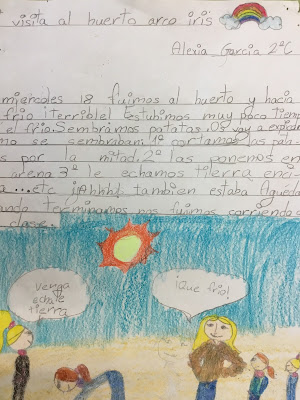 visita al huerto arco iris
Alexia Garcia 2ºC
miercoles 18 fuimos al huerto y hacia
frio iterrible! Estubimos muy poco tiemp
el frio. Sembrámos patatas. Os vay a
mo se sembraban. 1º cortamos las pata
s por la mitad. 2º las ponemos en
arena 3º le echamos tierra enci
a ...etc ¡¡Ahhh! tambien estaba Agueda
ando terminamos nos fuimos corriendo
clase.
Venga
echale
tierra
¡Que frio!